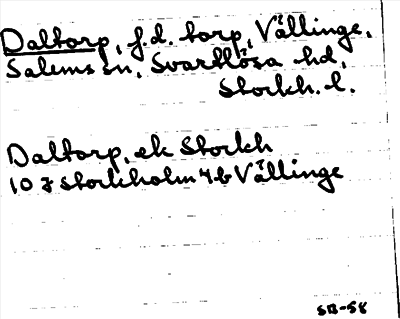 Daltorp, f.d. torp, Vällinge,
Salems sn, Svartlösa hd,
Stockh. l.
Daltorp, ek Stockh
10 I Stockholm 4 b Vällinge
SD-58